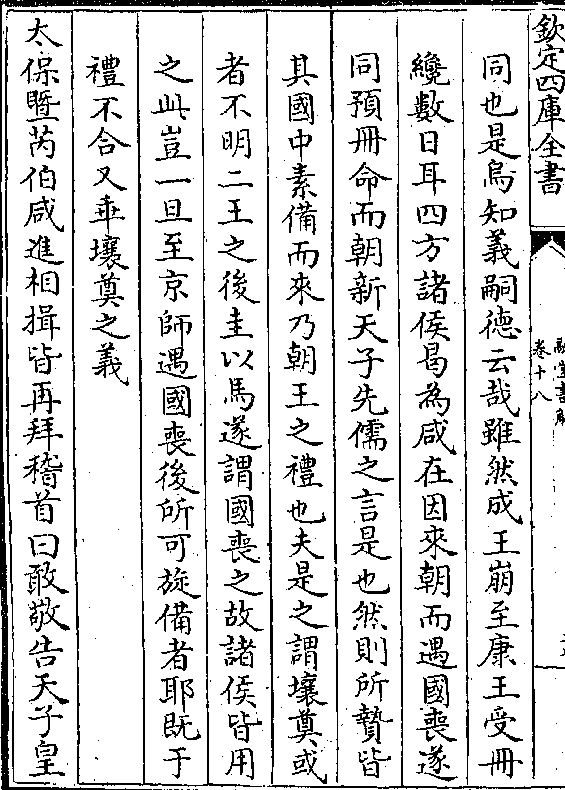 欽定四庫全書
融堂書解
卷十八
同也是烏知義嗣德云哉雖然成王崩至康王受冊
纔數日耳四方諸侯曷為咸在因來朝而遇國喪遂
同預冊命而朝新天子先儒之言是也然則所贄皆
其國中素備而來乃朝王之禮也夫是之謂壤奠或
者不明二王之後圭以馬遂謂國喪之故諸侯皆用
之此豈一旦至京師遇國喪後所可旋備者耶既于
禮不合又乖壤奠之義
太保暨芮伯咸進相揖皆再拜稽首曰敢敬告天子皇